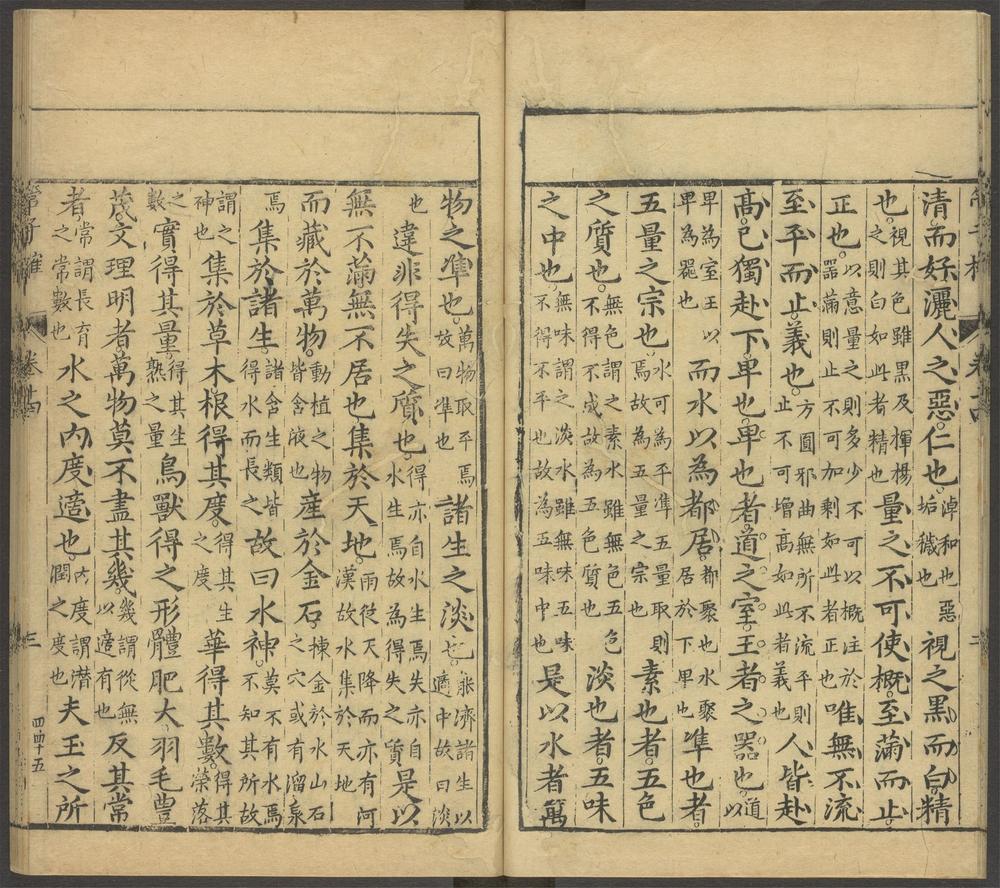 清而好灑人之惡仁也淖和也惡垢穢也視之黑而白精
也視其色雖黑及揮楊之則白如此者精也量之不可使概至滿而止
正也以意量之則多少不可以概注於器滿則止不可加剩如此者正也唯無不流
至平而止義也方圓邪曲無所不流平則止不可增高如此者義也人皆赴
高己獨赴下卑也卑也者道之室王者之器也道以
卑為室王以卑為器也而水以為都居都聚也水聚居於下卑也準也者
五量之宗也水可為平準五量取則焉故為五量之宗也素也者五色
之質也無色謂之素水雖無五色不得不成故為五色質也淡也者五味
之中也無味謂之淡水雖無味五味不得不平也故為五味中也是以水者萬
物之準也萬物取平焉故曰準也諸生之淡也能濟諸生以適中故曰淡
也違非得失之質也得亦自水生焉失亦自水生焉故為得失之質是以
無不滿無不居也集於天地雨從天降而亦有河漢故水集於天地
而藏於萬物動植之物皆含液也產於金石揀金於水山石之穴或有溜泉
焉集於諸生諸含生類皆得水而長之故曰水神莫不有水焉不知其所故
謂之神也集於草木根得其度得其生之度華得其數得其榮落
之數實得其量得其生熟之量鳥獸得之形體肥大羽毛豐
茂文理明者萬物莫不盡其幾幾謂從無以適有也反其常
者常謂長育之常數也水之內度適也內度謂潛潤之度也夫玉之所
卷十四 三 四四十五